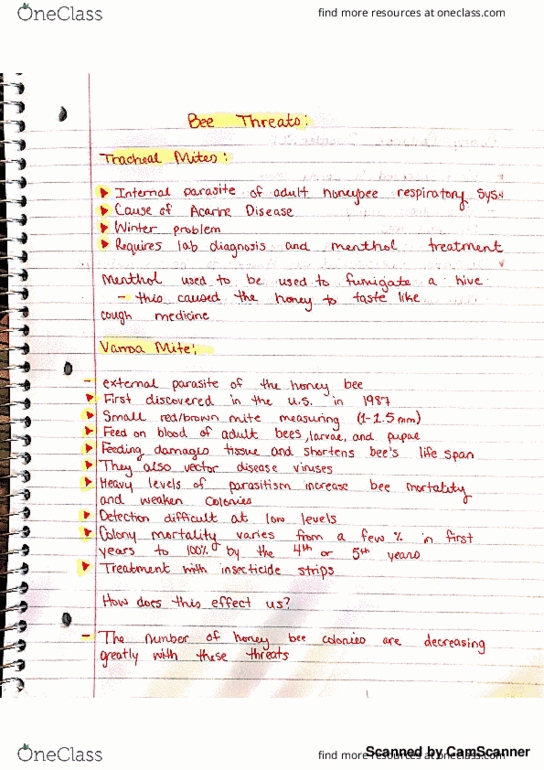 OneClass
find more resources at oneclass.com
Bee Threats:
Tracheal Mites:
Internal parasite of adult honeybee respiratory sys.
Cause of Acarine Disease
Winter problem
Requires lab diagnosis and menthol treatment
Menthol used to be used to fumigate a hive
- this caused the honey to taste like
cough medicine
Varroa Mite:
- external parasite of the honey bee
First discovered in the U.S. in 1987
Small red/brown mite measuring (1-1.5mm)
Feed on blood of adult bees, larvae, and pupae
Feeding damages tissue and shortens bee's life span
They also vector disease viruses
Heavy levels of parasitism increase bee mortality
and weaken colonies
Detection difficult at low levels
Colony mortality varies from a few % in first
years to 100% by the 4th or 5th years
Treatment with insecticide strips
How does this effect us?
- The number of honey bee colonies are decreasing
greatly with these threats
OneClass
find more resources at oneclass.com
Scanned by CamScanner